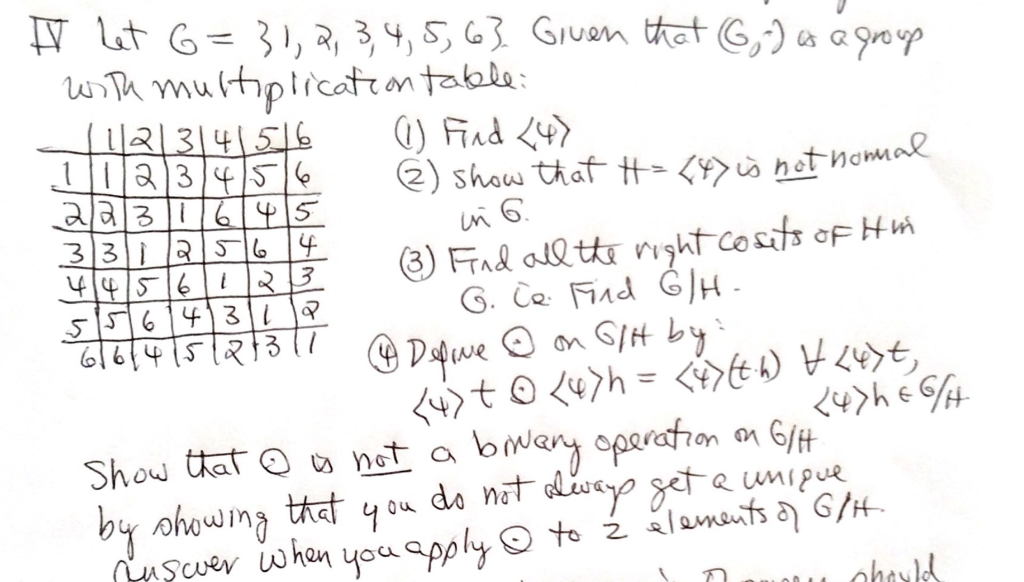 IV Let G = {1, 2, 3, 4, 5, 6}. Given that (G, ·) is a group
with multiplication table:
| 1 | 2 | 3 | 4 | 5 | 6
1 | 1 | 2 | 3 | 4 | 5 | 6
2 | 2 | 3 | 1 | 6 | 4 | 5
3 | 3 | 1 | 2 | 5 | 6 | 4
4 | 4 | 5 | 6 | 1 | 2 | 3
5 | 5 | 6 | 4 | 3 | 1 | 2
6 | 6 | 4 | 5 | 2 | 3 | 1
(1) Find <4>
(2) Show that H = <4> is not normal
in G.
(3) Find all the right cosets of H in
G. i.e. Find G/H.
(4) Define ⊙ on G/H by:
<4>t ⊙ <4>h = <4>(t·h) ∀ <4>t,
<4>h ∈ G/H
Show that ⊙ is not a binary operation on G/H
by showing that you do not always get a unique
answer when you apply ⊙ to 2 elements of G/H.
should